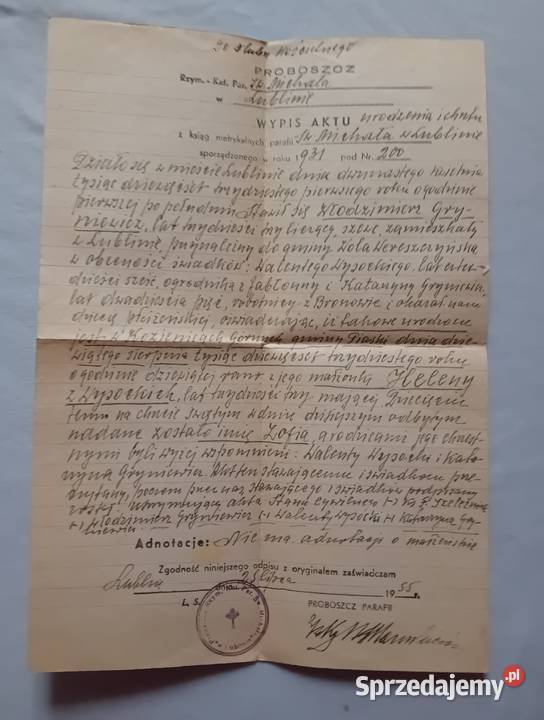 Do ślubu kościelnego
PROBOSZCZ
Rzym.-Kat. Par. Św. Michała
w Lublinie
WYPIS AKTU urodzenia i chrztu
z ksiąg metrykalnych parafii Św. Michała w Lublinie
sporządzonego w roku 1931 pod Nr. 200
Działo się w mieście Lublinie dnia dwunastego kwietnia
tysiąc dziewięćset trzydziestego pierwszego roku o godzinie
pierwszej po południu. Stawił się Włodzimierz Gry-
niewicz, lat trzydzieści trzy liczący, szewc, zamieszkały
w Lublinie, przynależny do gminy Wola Wereszczyńska
w obecności świadków: Walentego Wysockiego, lat czter-
dzieści sześć, ogrodnika z Jabłonny i Katarzyny Gryniewicz,
lat dwadzieścia pięć, robotnicy z Bronowic i okazał nam
dziecię płci żeńskiej, oświadczając, iż takowe urodzone
jest w Kozienicach Górnych gminy Piaski dnia dzie-
wiątego sierpnia tysiąc dziewięćset trzydziestego roku
o godzinie dziewiątej rano z jego małżonki Heleny
z Wysockich, lat trzydzieści trzy mającej. Dziecięciu
temu na chrzcie świętym w dniu dzisiejszym odbytym
nadane zostało imię Zofia, a rodzicami jego chrzest-
nymi byli wyżej wspomnieni: Walenty Wysocki i Kata-
rzyna Gryniewicz. Akt ten stawającemu i świadkom prze-
czytany, poczem przez nas, stawającego i świadków podpisany
został. Utrzymujący akta Stanu Cywilnego
(-) Włodzimierz Gryniewicz (-) Walenty Wysocki (-) Katarzyna Gry-
niewicz
Adnotacje: Nie ma adnotacji o małżeństwie
Zgodność niniejszego odpisu z oryginałem zaświadczam
Lublin dnia 23 lipca 1955 r.
L. S.
PROBOSZCZ PARAFII
Sprzedajemy.pl